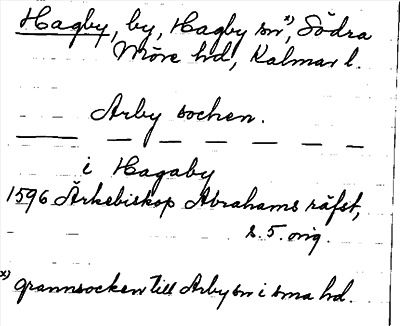 Hagby, by, Hagby sn x), Södra
Möre hd, Kalmar l.
Arby socken.
i Hagaby
1596 Ärkebiskop Abrahams räfst,
s. 5. orig.
x) grannsocken till Arby sn i sma hd.